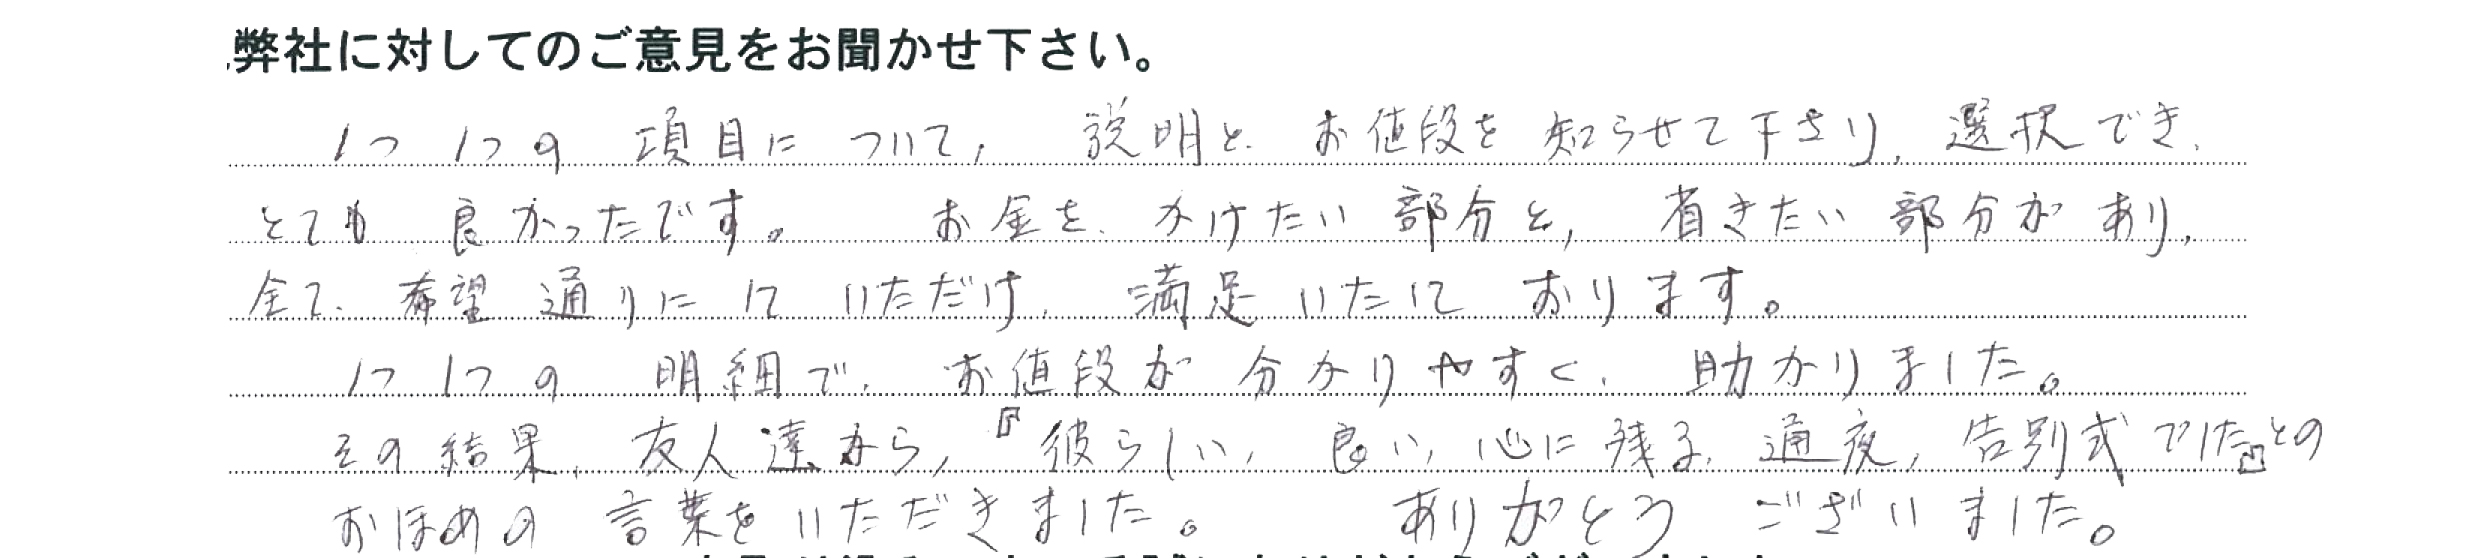 弊社に対してのご意見をお聞かせ下さい。
1つ1つの項目について、説明と、お値段を知らせて下さり、選択でき、
とても良かったです。お金を、かけたい部分と、省きたい部分があり、
全て、希望通りにしていただけ、満足いたしております。
1つ1つの明細で、お値段が分かりやすく、助かりました。
その結果、友人達から、『彼らしい、良い、心に残る、通夜、告別式でした』との
おほめの言葉をいただきました。ありがとうございました。